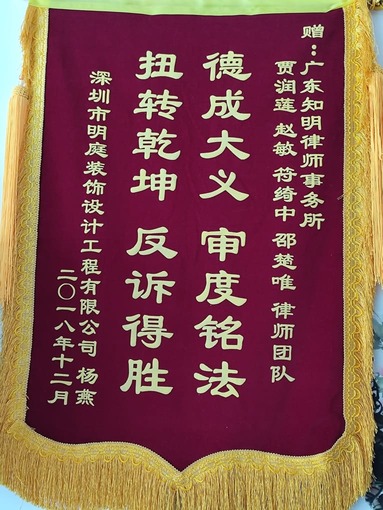 赠：广东知明律师事务所
贾润莲 赵敏 符绮中 邵楚唯 律师团队
德成大义 审度铭法
扭转乾坤 反诉得胜
深圳市明庭装饰设计工程有限公司 杨燕
二〇一八年十二月